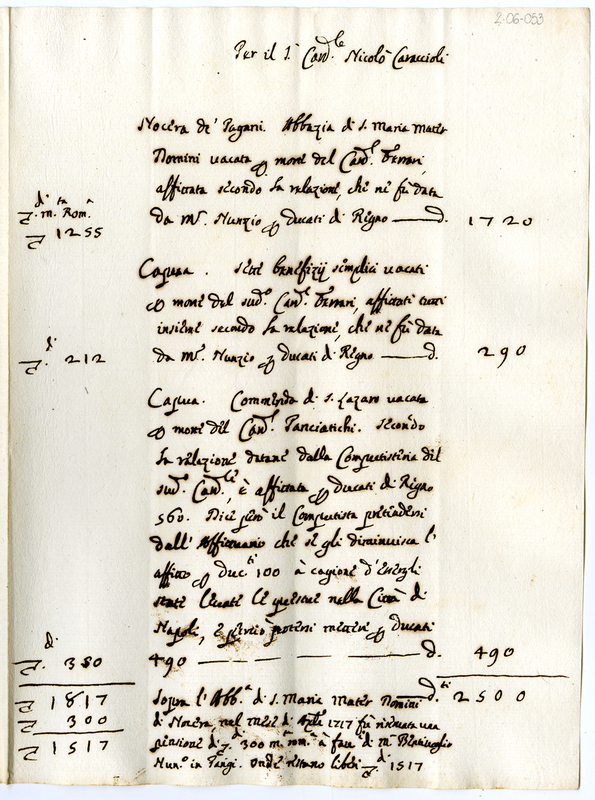 2-06-053
Per il S. Card.le Nicolò Caraccioli
Nocera de' Pagani. Abbazia di S. Maria Mater
Domini vacata p morte del Card.l Ferrari,
affittata secondo la relazione, che ne fù data
da M.r Nunzio p Ducati di Regno — D. 1720
di ta a
m. Rom.
1255
Capua. Sette benefizij semplici vacati
p morte del sud.o Card.l Ferrari, affittati tutti
insieme secondo la relazione, che ne fù data
da M.r Nunzio p Ducati di Regno — D. 290
di
212
Capua. Commenda di S. Lazaro vacata
p morte del Card.l Panciatichi. Secondo
la relazione datane dalla Computisteria del
sud.o Card.le, è affittata p Ducati di Regno
560. Dice però il Computista pretendersi
dall' Affittuario che se gli diminuisca l'
affitto p Duc.ti 100 à cagione d'essergli
state levate le questue nella Città di
Napoli, e perciò potersi mettere p Ducati
490 — D. 490
di
350
D.ti 2500
1817
300
1517
Sopra l'Abb.a di S. Maria Mater Domini
di Nocera nel mese di 1717 fù riservata una
pensione di 300 m.a rom.a à fav.e di M.r Bentivoglio
Nun.o in Parigi. Onde restano liberi di 1517